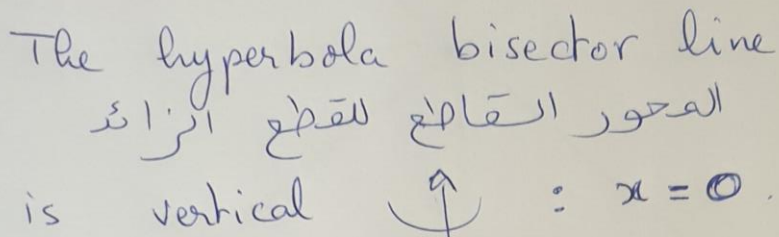 The hyperbola bisector line
المحور القاطع للقطع الزائد
is vertical : x = 0.